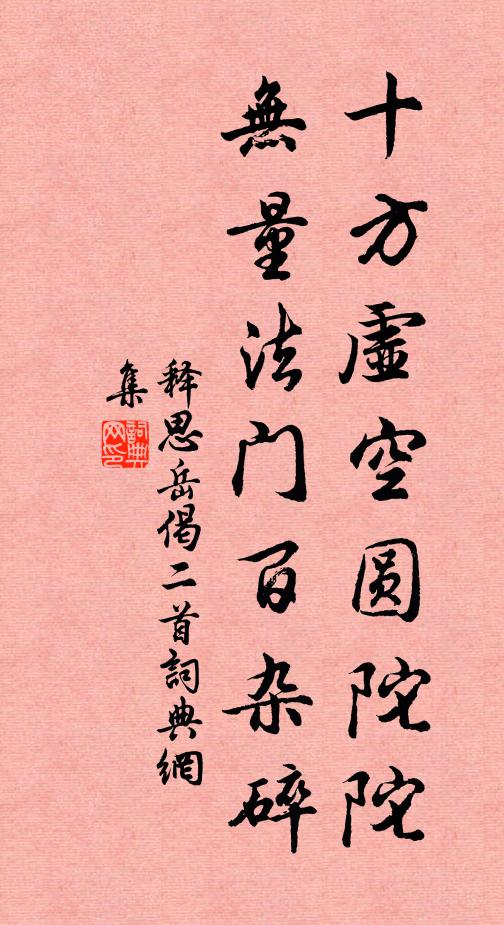 十方虛空圆陀陀
無量法门百杂碎
释思岳偈二首詞典網
集
詞典
网印